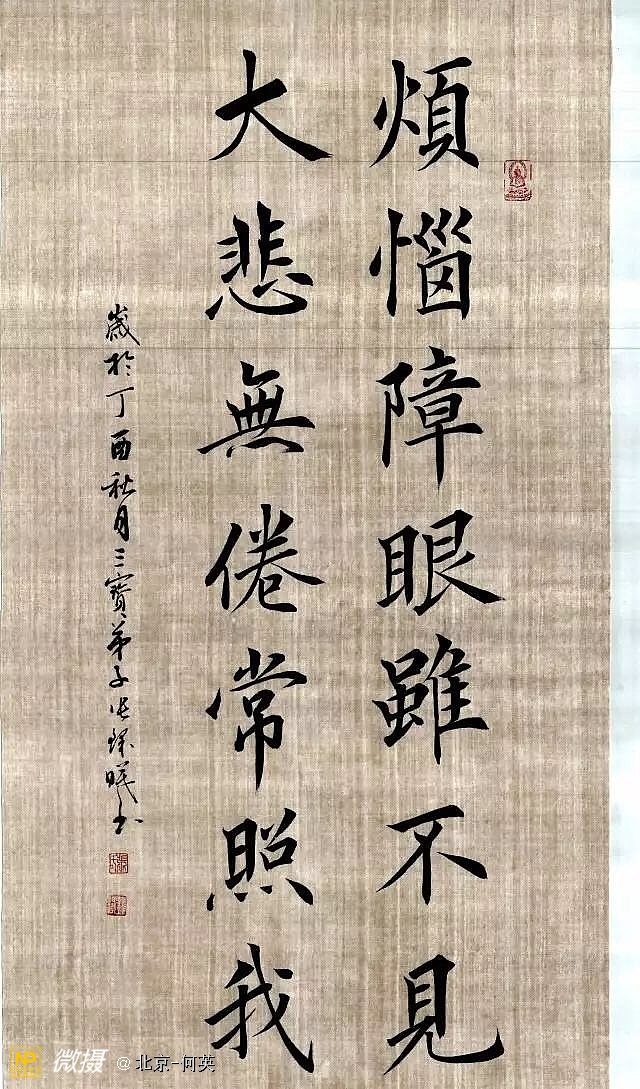 煩惱障眼雖不見
大悲無倦常照我
歲於丁酉秋月三寶弟子張 書
微摄 @北京-何英